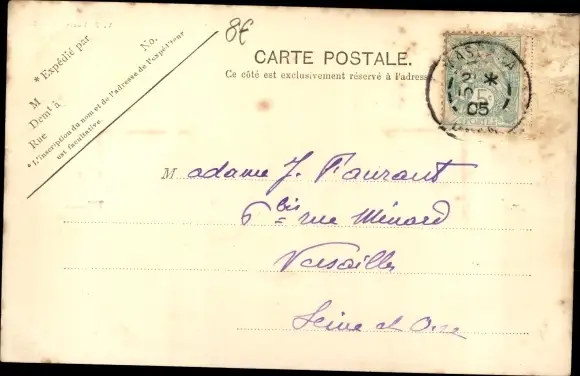 8€
CARTE POSTALE.
Ce côté est exclusivement réservé à l'adresse
* Expédié par
No.
M
Demt à
Rue
*L'inscription du nom et de l'adresse de l'expéditeur
est facultative.
05
Madame J. Faurant
6 bis rue Ménard
Versailles
Seine et Oise